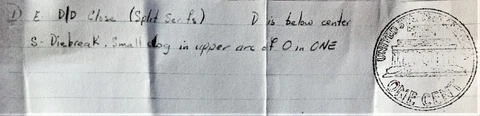 ① E D/D Close (Split Serifs) D is below center
S - Diebreak, Small clog in upper arc of O in ONE
UNITED STATES
ONE CENT